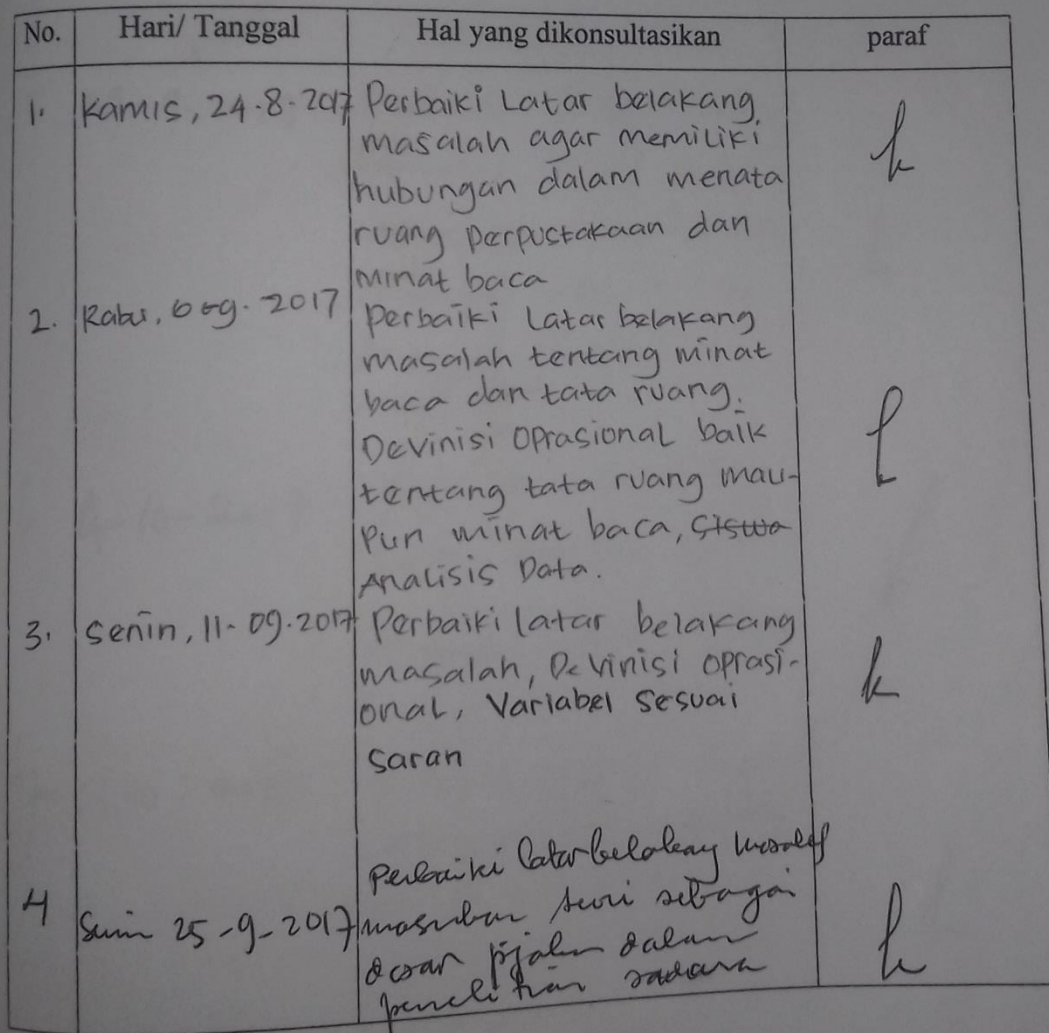 No. Hari/ Tanggal Hal yang dikonsultasikan paraf
1. Kamis, 24-8-2017 Perbaiki Latar belakang
masalah agar memiliki
hubungan dalam menata
ruang perpustakaan dan
minat baca
2. Rabu, 6-9-2017 perbaiki Latar belakang
masalah tentang minat
baca dan tata ruang.
Devinisi Oprasional baik
tentang tata ruang mau-
pun minat baca, siswa
Analisis Data.
3. Senin, 11-09-2017 Perbaiki latar belakang
masalah, Devinisi oprasi-
onal, Variabel sesuai
saran
Perbaiki latar belakang masalah
4 Senin 25-9-2017 masukan teori sebagai
dasar pijakan dalam
penelitian